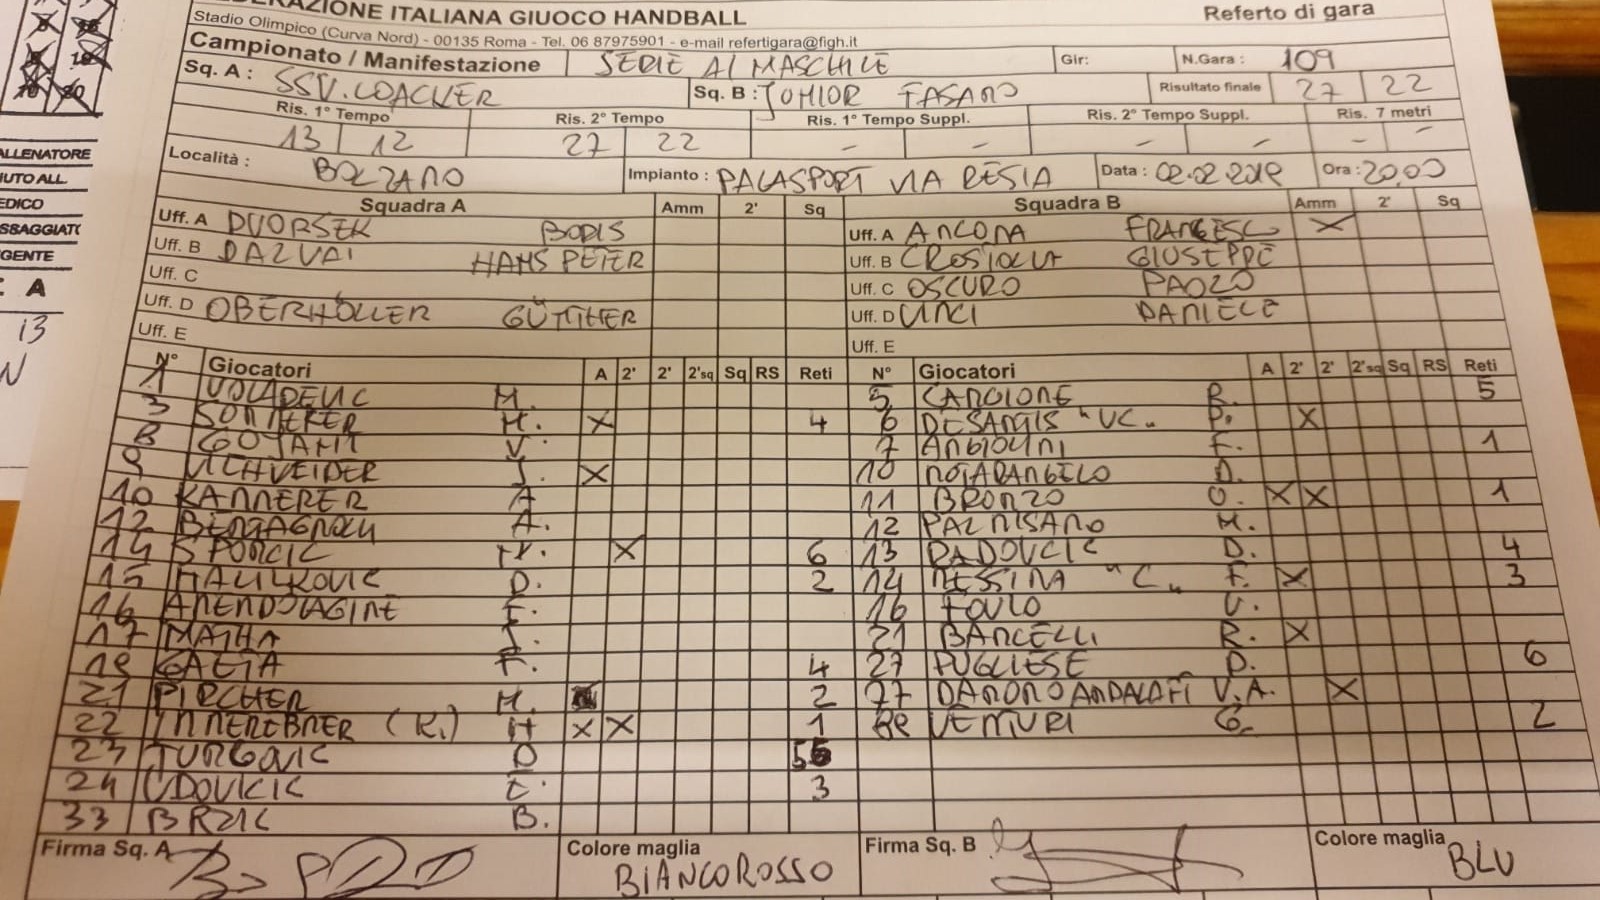 FEDERAZIONE ITALIANA GIUOCO HANDBALL
Referto di gara
Stadio Olimpico (Curva Nord) - 00135 Roma - Tel. 06 87975901 - e-mail refertigara@figh.it
Campionato / Manifestazione SERIE A1 MASCHILE Gir: N.Gara : 109
Sq. A : SSV. LOACKER Sq. B : JUNIOR FASANO Risultato finale 27 22
Ris. 1° Tempo Ris. 2° Tempo Ris. 1° Tempo Suppl. Ris. 2° Tempo Suppl. Ris. 7 metri
13 12 27 22 - - - - - -
Località : BOLZANO Impianto : PALASPORT VIA RESIA Data : 02.02.2019 Ora : 20.00
Squadra A Amm 2' Sq Squadra B Amm 2' Sq
Uff. A DVORSEK BORIS Uff. A ANCONA FRANCESC X
Uff. B DALVAI HANS PETER Uff. B CROSIOLLA GIUSEPPE
Uff. C Uff. C OSCURO PAOLO
Uff. D OBERHÖLLER GÜNTHER Uff. D VINCI DANIELE
Uff. E Uff. E
N° Giocatori A 2' 2' 2'sq Sq RS Reti N° Giocatori A 2' 2' 2'sq Sq RS Reti
1 VOLAREVIC M. 5 CANCIONE R. 5
3 SONNERER M. X 4 6 DESANTIS "VC" P. X
8 V. 7 ANGIOLINI F. 1
9 J. X 10 NOTARANGELO D.
10 KAMMERER A 11 BRONZO O. X X 1
12 A. 12 PALMISANO M.
14 SPORCIC M. X 6 13 RADOVCIC D. 4
15 HALILKOVIC D. 2 14 MESSINA "C" F. X 3
16 AMENDOLAGINE F. 16 FOVIO V.
17 MATHA J. 21 BARCELLI R. X
18 GAETA F. 4 27 PUGLIESE D. 6
21 PIRCHER M. 2 77 V.A. X
22 INNEREBNER (K.) H X X 1 VENTURI G. 2
23 TURKOVIC D 5
24 UDOVICIC E. 3
33 BRZIC B.
Firma Sq. A Colore maglia BIANCOROSSO Firma Sq. B Colore maglia BLU
ALLENATORE
AIUTO ALL.
MEDICO
A
13
N